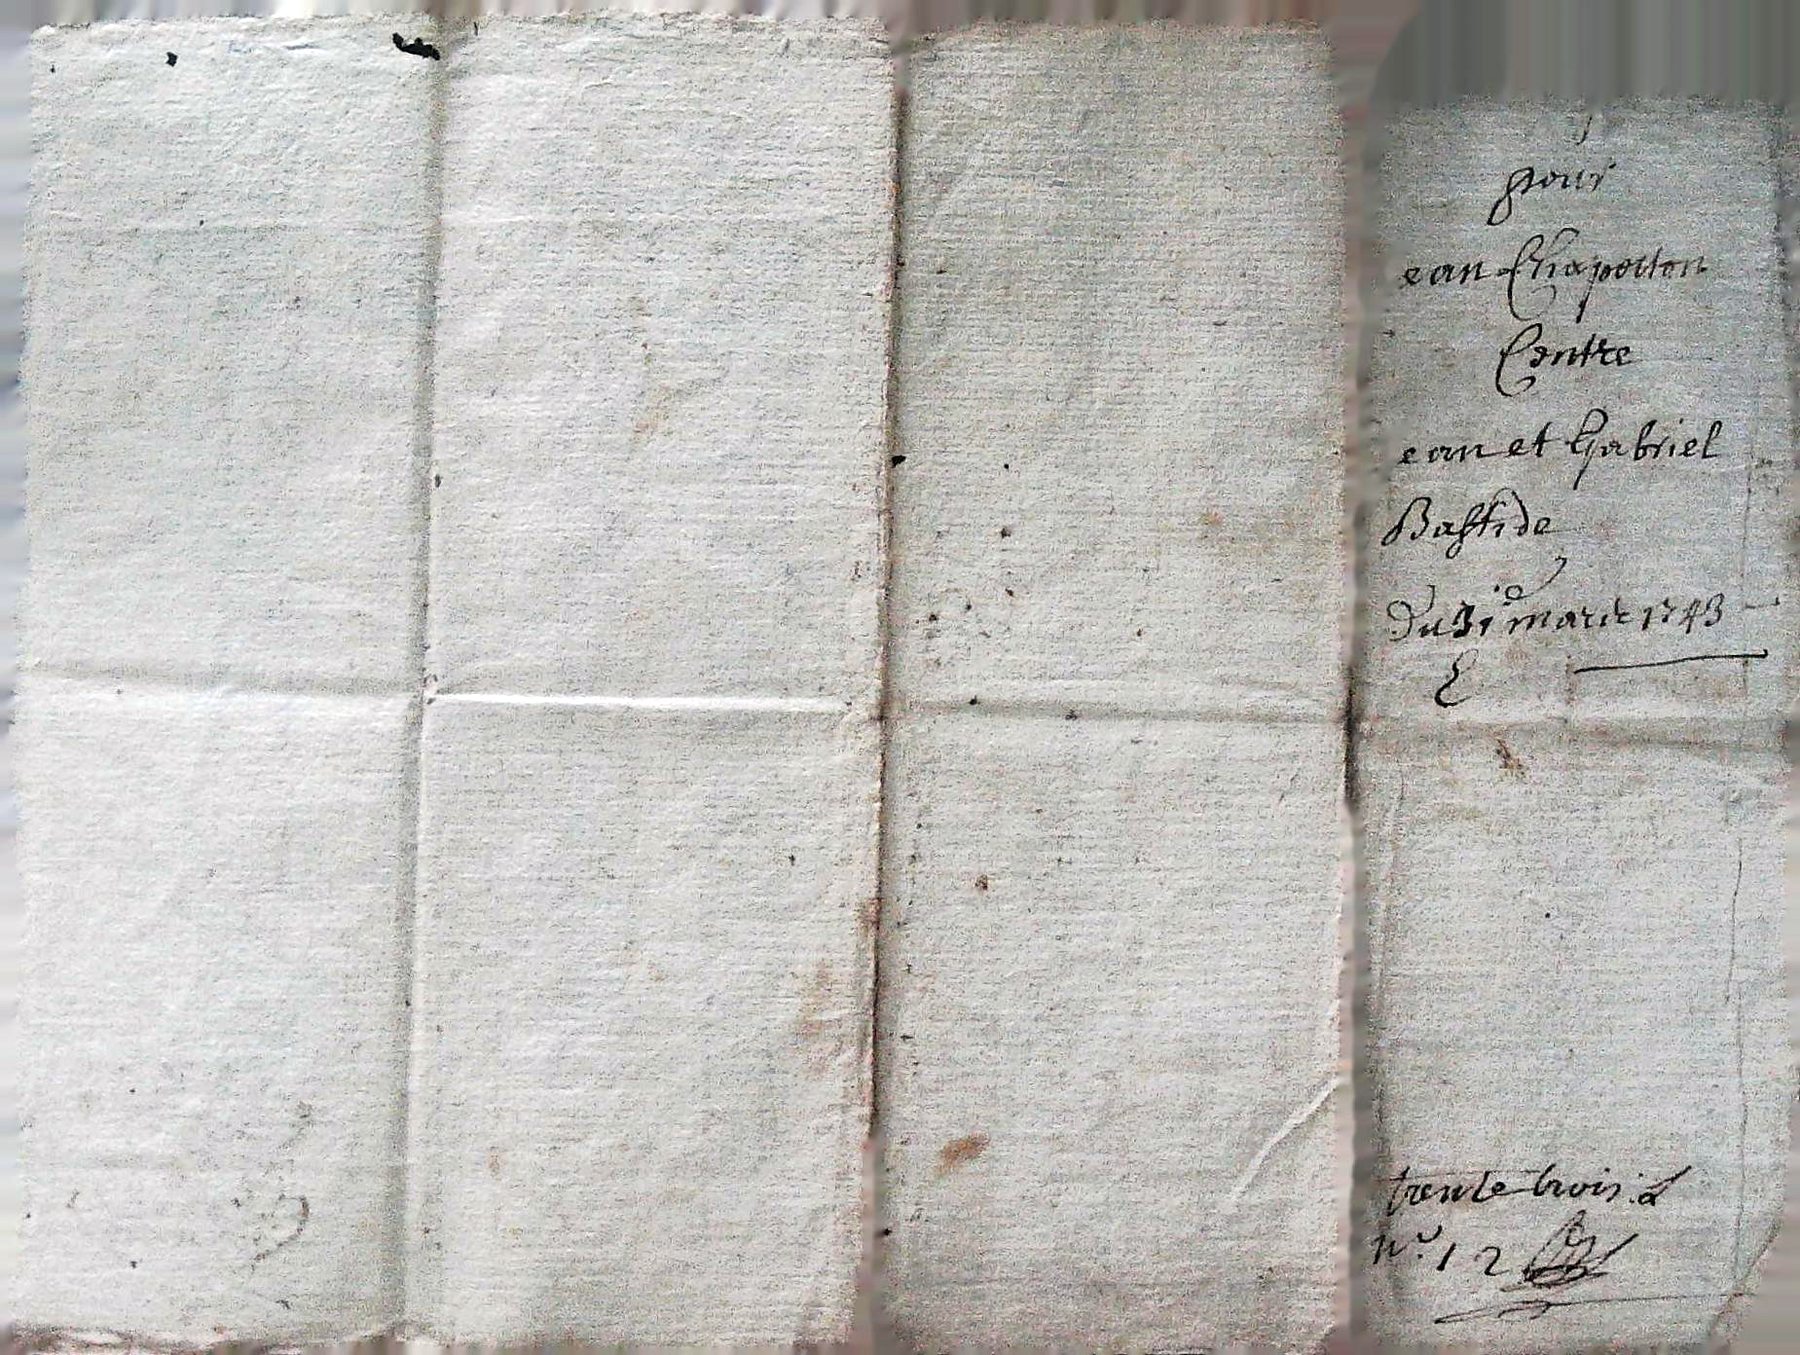 pour
ean Chapotton
Contre
ean et Gabriel
Bastide
Du 31 mars 1743
trente trois
n.º 12